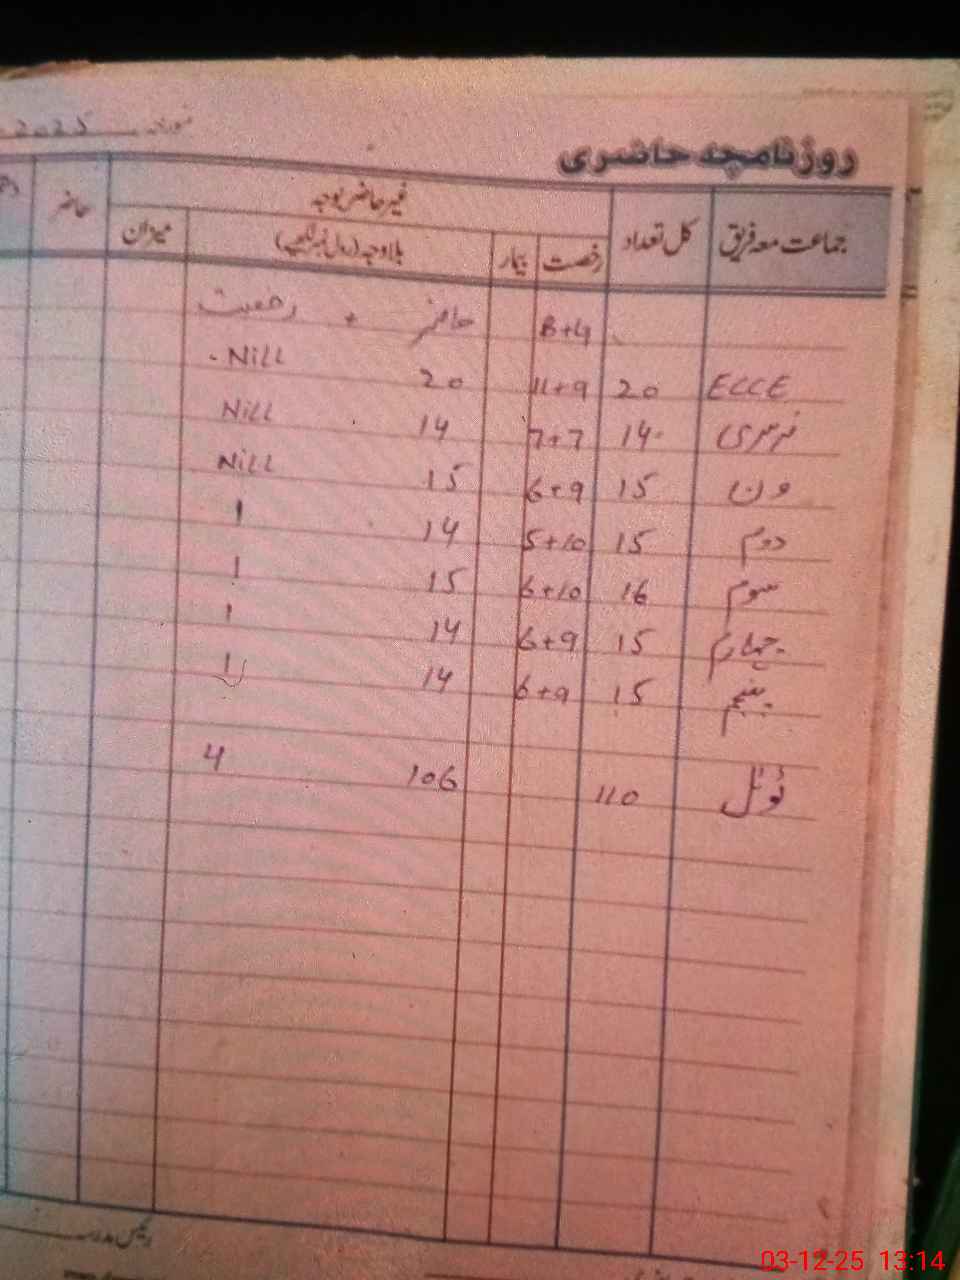 2025
روزنامچہ حاضری
جماعت معہ فریق کل تعداد غیر حاضر بوجہ حاضر
رخصت بیمار بلاوجہ (رول نمبر لکھیے) میزان
B+G حاضر + رخصت
ECCE 20 11+9 20 Nill
نرسری 14 7+7 14 Nill
ون 15 6+9 15 Nill
دوم 15 5+10 14 1
سوم 16 6+10 15 1
چہارم 15 6+9 14 1
پنجم 15 6+9 14 1
ٹوٹل 110 106 4
رئیس مدرسہ
03-12-25 13:14